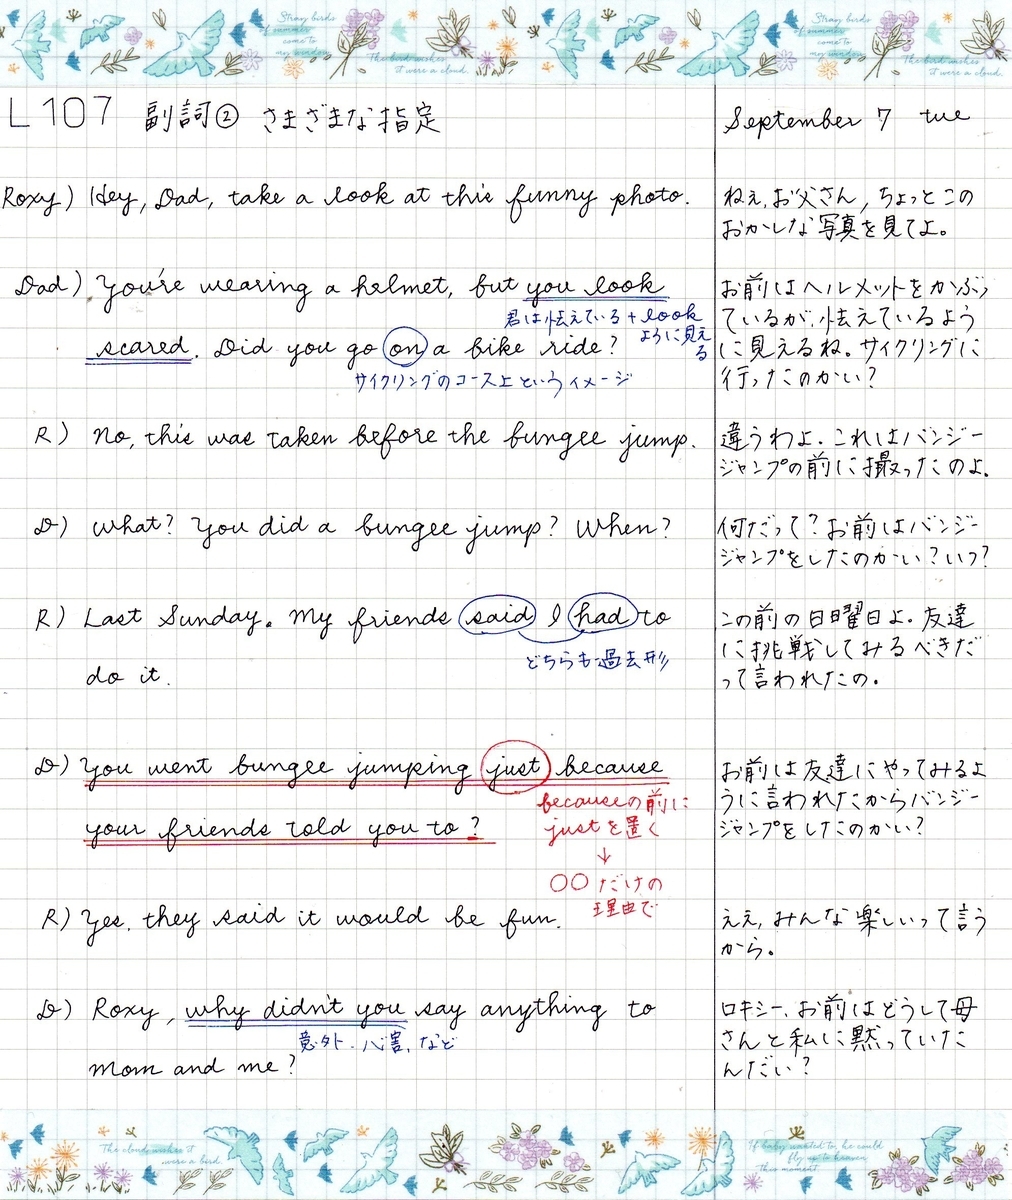 Stray birds
of summer
come to
my window
The bird wishes
it were a cloud.
Stray birds
of summer
come to
my window
The bird wishes
it were a cloud.
L107 副詞② さまざまな指定
September 7 tue
Roxy) Hey, Dad, take a look at this funny photo.
ねぇ、お父さん、ちょっとこの
おかしな写真を見てよ。
Dad) You're wearing a helmet, but you look
君は怯えている + look
ように見え
る
scared. Did you go on a bike ride?
サイクリングのコース上というイメージ
お前はヘルメットをかぶっ
ているが、怯えているよう
に見えるね。サイクリングに
行ったのかい?
R) No, this was taken before the bungee jump.
違うわよ。これはバンジー
ジャンプの前に撮ったのよ。
D) What? You did a bungee jump? When?
何だって?お前はバンジー
ジャンプをしたのかい?いつ?
R) Last Sunday. My friends said I had to
どちらも過去形
do it.
この前の日曜日よ。友達
に挑戦してみるべきだ
って言われたの。
D) You went bungee jumping just because
your friends told you to?
becauseの前に
justを置く
↓
○○だけの
理由で
お前は友達にやってみるよ
うに言われたからバンジー
ジャンプをしたのかい?
R) Yes, they said it would be fun.
ええ、みんな楽しいって言う
から。
D) Roxy, why didn't you say anything to
意外・心害、など
mom and me?
ロキシー、お前はどうして母
さんと私に黙っていた
んだい?
The cloud wishes it
were a bird.
If baby wanted to, he could
fly up to heaven
this moment